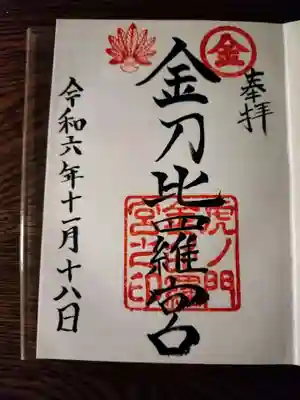 奉拝
金
金刀比羅宮
虎ノ門
金刀比羅
宮之印
令和六年十一月十八日